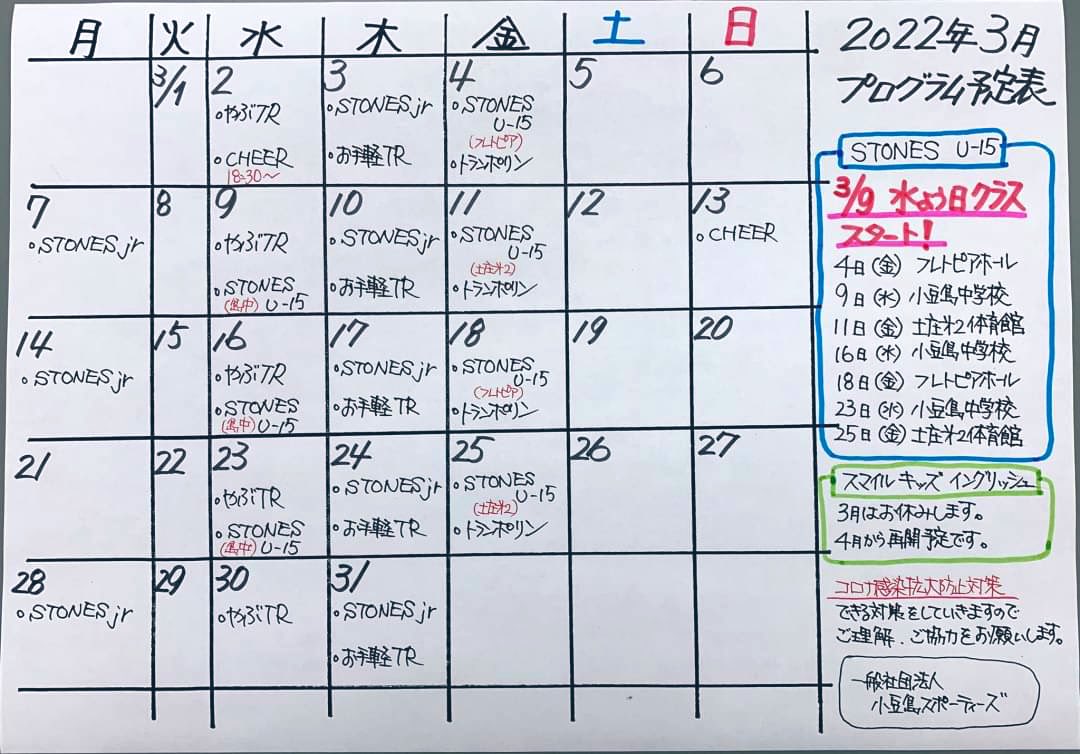 月 火 水 木 金 土 日
3/1 2 3 4 5 6
・やぶTR ・STONESjr ・STONES
U-15
(フレトピア)
・CHEER ・お手軽TR ・トランポリン
18:30〜
7 8 9 10 11 12 13
・STONESjr ・やぶTR ・STONESjr ・STONES ・CHEER
U-15
(土庄オ2)
・STONES ・お手軽TR ・トランポリン
(島中) U-15
14 15 16 17 18 19 20
・STONESjr ・やぶTR ・STONESjr ・STONES
U-15
(フレトピア)
・STONES ・お手軽TR ・トランポリン
(島中) U-15
21 22 23 24 25 26 27
・やぶTR ・STONESjr ・STONES
U-15
(土庄オ2)
・STONES ・お手軽TR ・トランポリン
(島中) U-15
28 29 30 31
・STONESjr ・やぶTR ・STONESjr
・お手軽TR
2022年3月
プログラム予定表
STONES U-15
3/9 水よう日クラス
スタート!
4日(金) フレトピアホール
9日(水) 小豆島中学校
11日(金) 土庄オ2体育館
16日(水) 小豆島中学校
18日(金) フレトピアホール
23日(水) 小豆島中学校
25日(金) 土庄オ2体育館
スマイルキッズイングリッシュ
3月はお休みします。
4月から再開予定です。
コロナ感染拡大防止対策
できる対策をしていきますので
ご理解、ご協力をお願いします。
一般社団法人
小豆島スポーティーズ